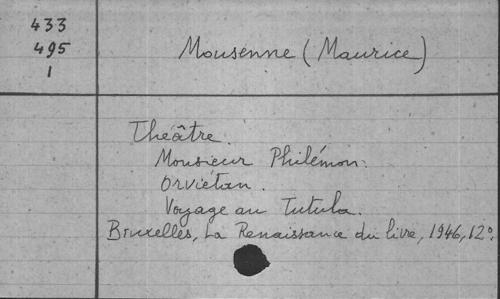 433
495
1
Mousenne (Maurice)
Théâtre.
Monsieur Philémon.
Orviétan.
Voyage au Tutula.
Bruxelles, La Renaissance du livre, 1946, 12°.